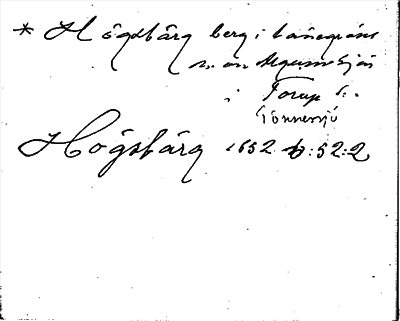 * Högsbärg berg i länsgräns
n. om Algunnsjön
i Torup s.
Tönnersjö
Högsbärg 1652 D:52:2